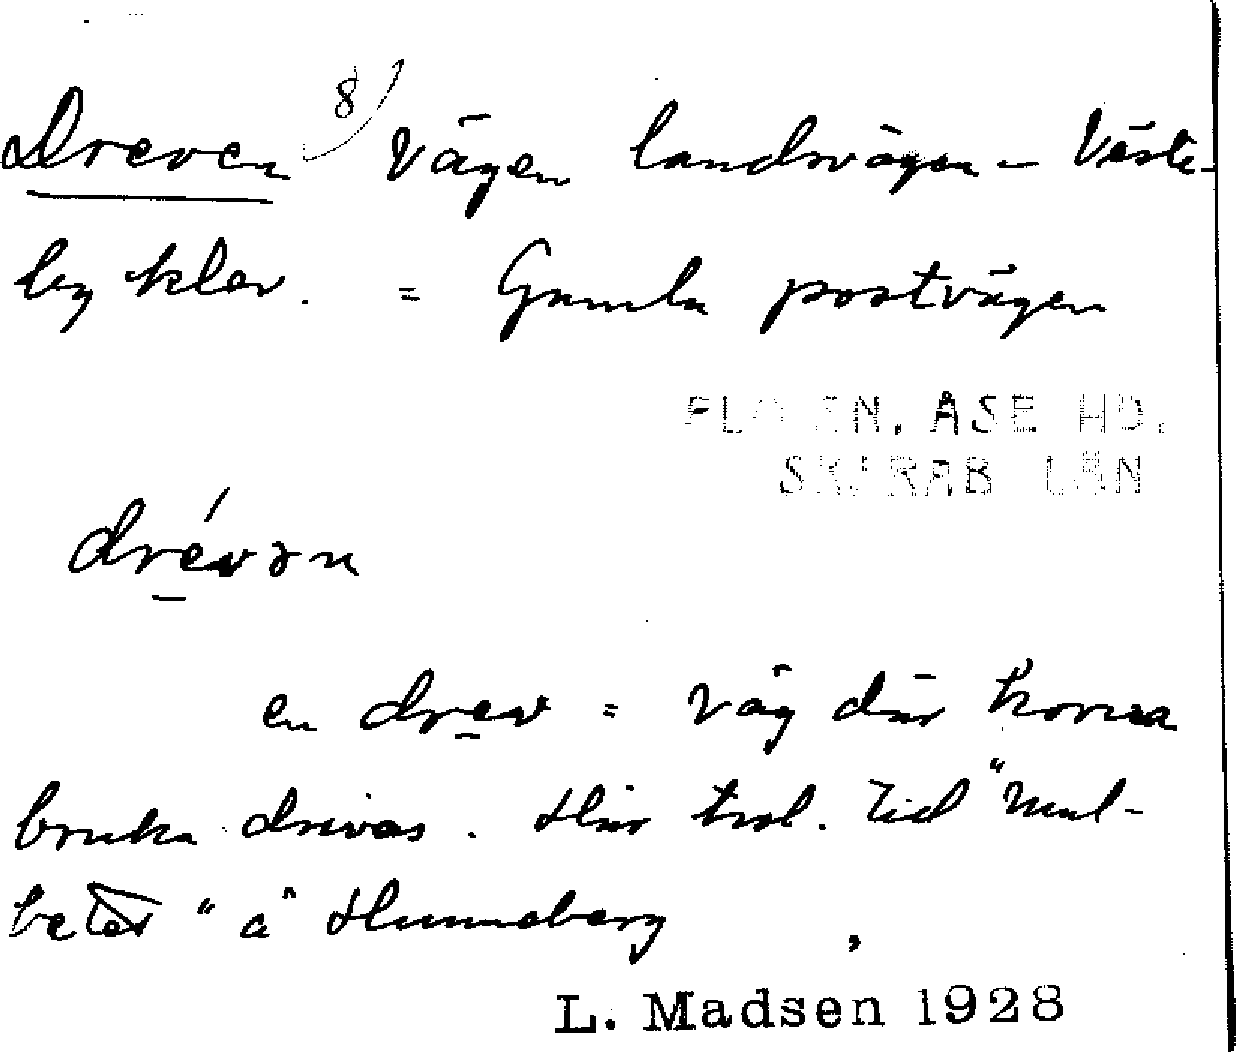 Dreven 8) Vägen landsvägen – Väste-
by klev. = Gamla postvägen
FLO SN, ÅSE HD.
SKARAB LÄN
drévən
en drev = väg där korna
bruka drivas. Här trol. till "mul-
betet" å Hunneberg
L. Madsen 1928